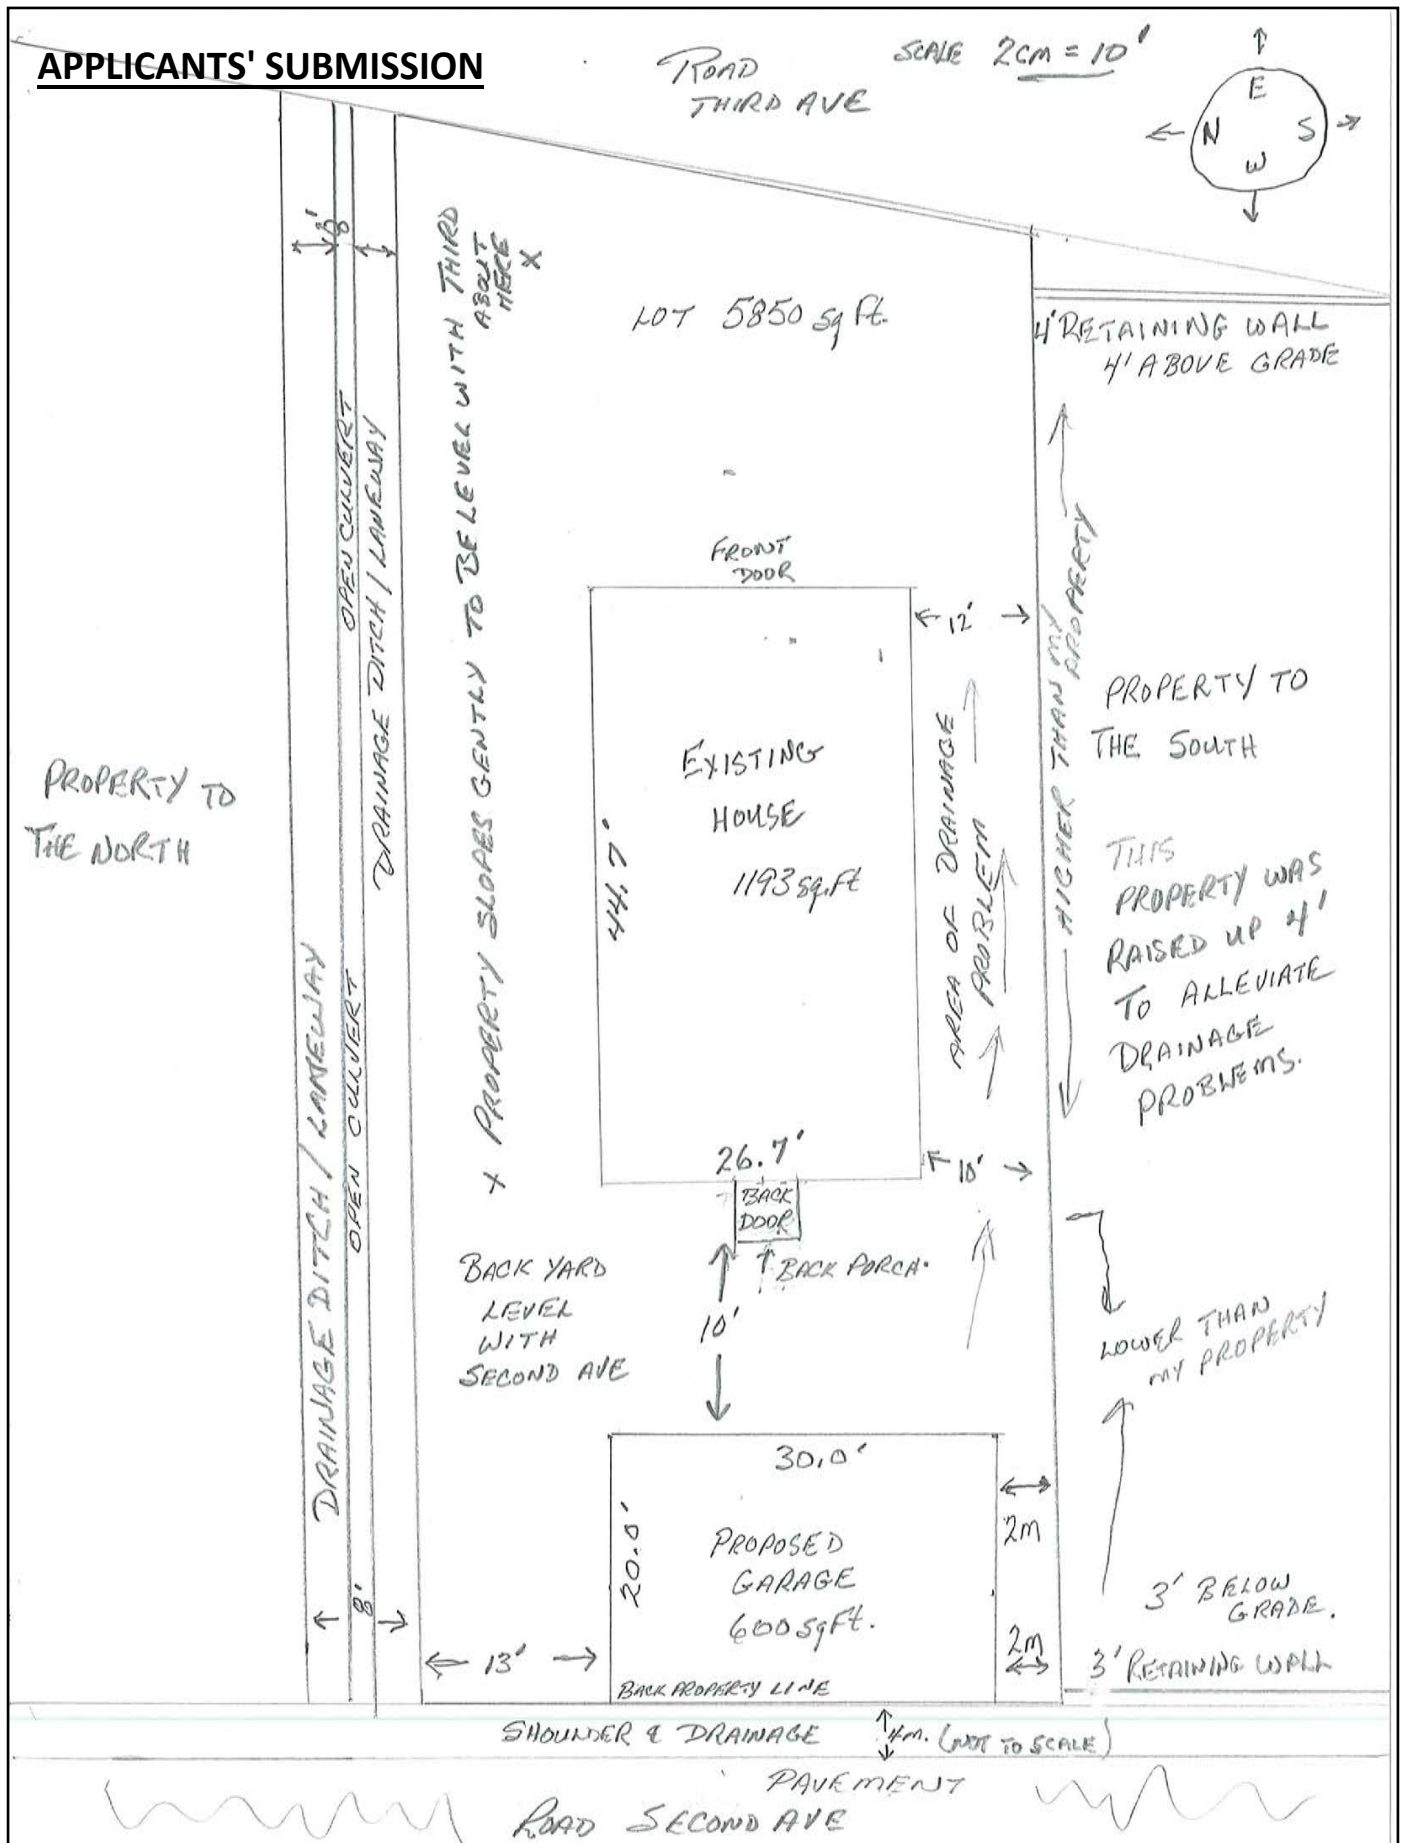 APPLICANTS' SUBMISSION
ROAD
THIRD AVE
SCALE 2CM = 10'
E
N S
W
8'
PROPERTY SLOPES GENTLY TO BE LEVEL WITH THIRD
ABOUT
HERE
X
X
LOT 5850 sq Ft.
4' RETAINING WALL
4' ABOVE GRADE
OPEN CULVERT
DRAINAGE DITCH / LANEWAY
FRONT
DOOR
12'
HIGHER THAN MY
PROPERTY
PROPERTY TO
THE SOUTH
PROPERTY TO
THE NORTH
EXISTING
HOUSE
1193 sq.Ft
44.7'
AREA OF DRAINAGE
PROBLEM
THIS
PROPERTY WAS
RAISED UP 4'
TO ALLEVIATE
DRAINAGE
PROBLEMS.
DRAINAGE DITCH / LANEWAY
OPEN CULVERT
26.7'
10'
BACK
DOOR
BACK PORCH.
BACK YARD
LEVEL
WITH
SECOND AVE
10'
LOWER THAN
MY PROPERTY
30.0'
20.0'
PROPOSED
GARAGE
600 sqFt.
2m
2m
3' BELOW
GRADE.
3' RETAINING WALL
8'
13'
BACK PROPERTY LINE
SHOULDER & DRAINAGE
4m. (NOT TO SCALE)
PAVEMENT
ROAD SECOND AVE